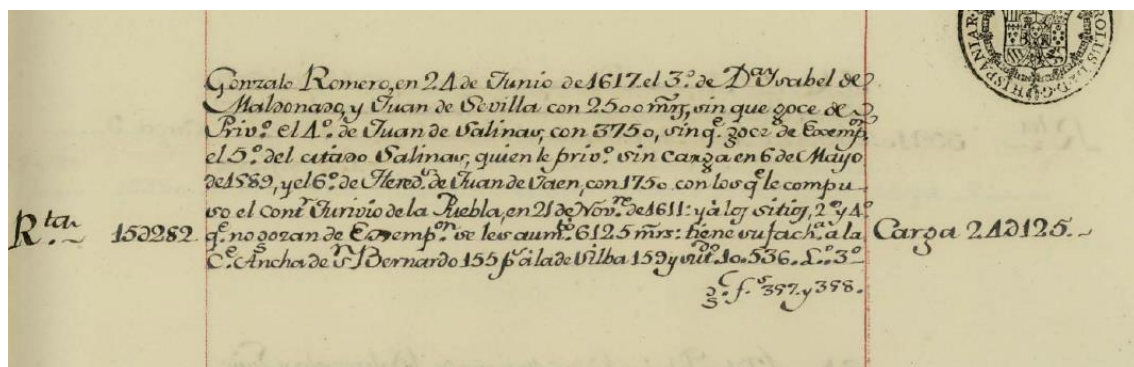 HISPANIAR. CAROLUS III D. G.
Gonzalo Romero, en 24 de Junio de 1617. el 3.º de D.ª Ysabel de
Maldonado, y Juan de Sevilla con 2500 mrs, sin que goce de
Priv.º el 4.º de Juan de Salinas, con 3750, sin q.e goce de Exemp.
el 5.º del citado Salinas, quien le priv.º sin carga en 6 de Mayo
de 1589, y el 6.º de Hered.s de Juan de Jaen, con 1750 con los q.e le compu
so el Cont.r Turivio de la Puebla, en 21 de Nov.re de 1611: y à los sitios, 2.º y 4.º
q.e no gozan de Exemp.on se les aum.º 6125 mrs: tiene su fach.a à la
C.e Ancha de S.n Bernardo 155 p.s à la de Silba 159 y su tt.do 10.536. L.º 3.º
f.s 397. y 398.
R.tan 15d282. Carga 24d125.